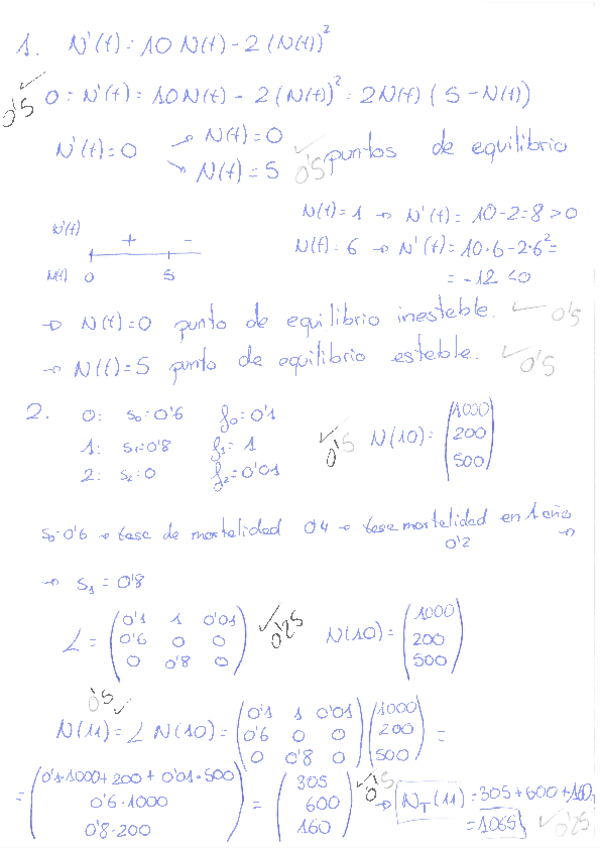 1. N'(t) = 10 N(t) - 2 (N(t))²
0 = N'(t) = 10N(t) - 2 (N(t))² = 2N(t) (5 - N(t))
0'5
N'(t) = 0 → N(t) = 0
→ N(t) = 5 0'5 puntos de equilibrio
N(t) = 1 → N'(t) = 10 - 2 = 8 > 0
N'(t) + -
N(t) = 6 → N'(t) = 10·6 - 2·6² =
N(t) 0 5
= -12 < 0
→ N(t) = 0 punto de equilibrio inestable. 0'5
→ N(t) = 5 punto de equilibrio estable. 0'5
2. 0: s₀ = 0'6 f₀ = 0'1
1: s₁ = 0'8 f₁ = 1
2: s₂ = 0 f₂ = 0'01
0'5 N(10) = (1000
200
500)
s₀ = 0'6 → tasa de mortalidad 0'4 → tasa mortalidad en 1 año →
0'2
→ s₁ = 0'8
L = (0'1 1 0'01
0'6 0 0
0 0'8 0) 0'25
N(10) = (1000
200
500)
0'5
N(11) = L N(10) = (0'1 1 0'01
0'6 0 0
0 0'8 0) (1000
200
500) =
= (0'1·1000 + 200 + 0'01·500
0'6·1000
0'8·200) = (305
600
160) 0'5
→ N_T(11) = 305 + 600 + 160 =
= 1065 0'25